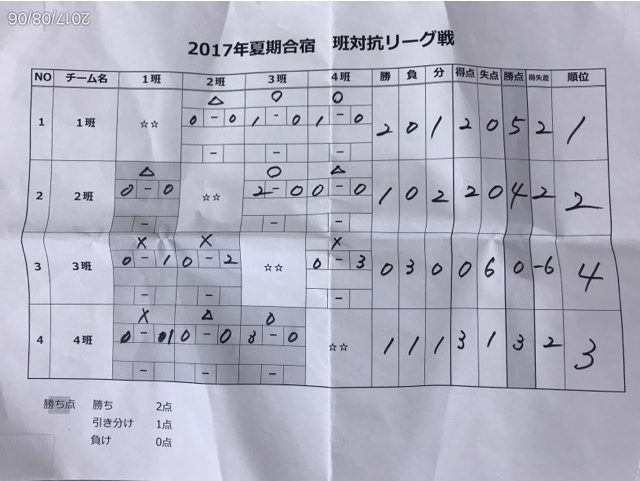 2017/08/06
2017年夏期合宿 班対抗リーグ戦
NO チーム名 1班 2班 3班 4班 勝 負 分 得点 失点 勝点 得失差 順位
△ ○ ○
1 1班 ☆☆ 0 - 0 1 - 0 1 - 0 2 0 1 2 0 5 2 1
- - -
△ ○ △
2 2班 0 - 0 ☆☆ 2 - 0 0 - 0 1 0 2 2 0 4 2 2
- - -
× × ×
3 3班 0 - 1 0 - 2 ☆☆ 0 - 3 0 3 0 0 6 0 -6 4
- - -
× △ ○
4 4班 0 - 1 0 - 0 3 - 0 ☆☆ 1 1 1 3 1 3 2 3
- - -
勝ち点 勝ち 2点
引き分け 1点
負け 0点